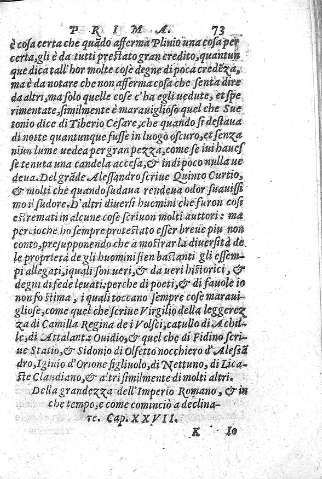 PRIMA. 73
è cosa certa che quãdo afferma Plinio una cosa per
certa, gli è da tutti prestato gran credito, quantun
que dica tall'hor molte cose degne di poca credẽza,
ma è da notare che non afferma cosa che senta dire
da altri, ma solo quelle cose c'ha egli uedute, et spe
rimentate, similmente è marauiglioso quel che Sue
tonio dice di Tiberio Cesare, che quando si destaua
di notte quantunque fusse in luogo oscuro, et senza
niun lume uedea per gran pezza, come se iui hauesse
se tenuta una candela accesa, & in di poco nulla ue
deua. Del grãde Alessandro scriue Quinto Curtio,
& molti che quando sudaua rendeua odor suauissi
mo il sudore. D'altri diuersi huomini che furon cosi
estremati in alcune cose scriuon molti auttori: ma
percioche ho sempre protestato esser breue piu non
conto, presupponendo che à mostrar la diuersità de
le proprietà de gli huomini sien bastanti gli essem-
pi allegati, i quali son ueri, & da ueri historici, &
degni di fede leuati: perche di poeti, & di fauole io
non fo stima, i quali toccano sempre cose maraui-
gliose, come quel che scriue Virgilio della leggerez
za di Camilla Regina de i Volsci, catullo di Achil-
le, di Attalanta Ouidio, & quel che di Fidino scri-
ue Statio, & Sidonio di Olfetto nocchiero d'Alessã
dro, Iginio d'Orione figliuolo, di Nettuno, di Lica-
ste Claudiano, & altri similmente di molti altri.
Della grandezza dell'Imperio Romano, & in
che tempo, e come cominciò a declina-
re. Cap. XXVII.
K Io